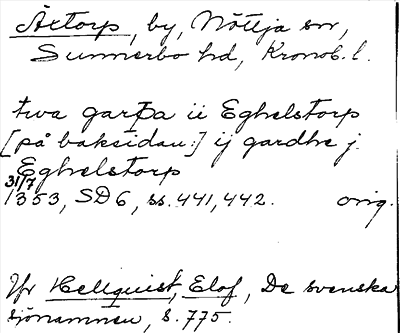 Äxtorp, by, Nöttja sn,
Sunnerbo hd, Kronob. l.
twa garþa ii Eghelstorp
[på baksidan:] ij gardhe j.
Eghelstorp
31/7
1353, SD 6, ss. 441, 442. orig.
Jfr Hellquist, Elof, De svenska
sjönamnen, s. 775.